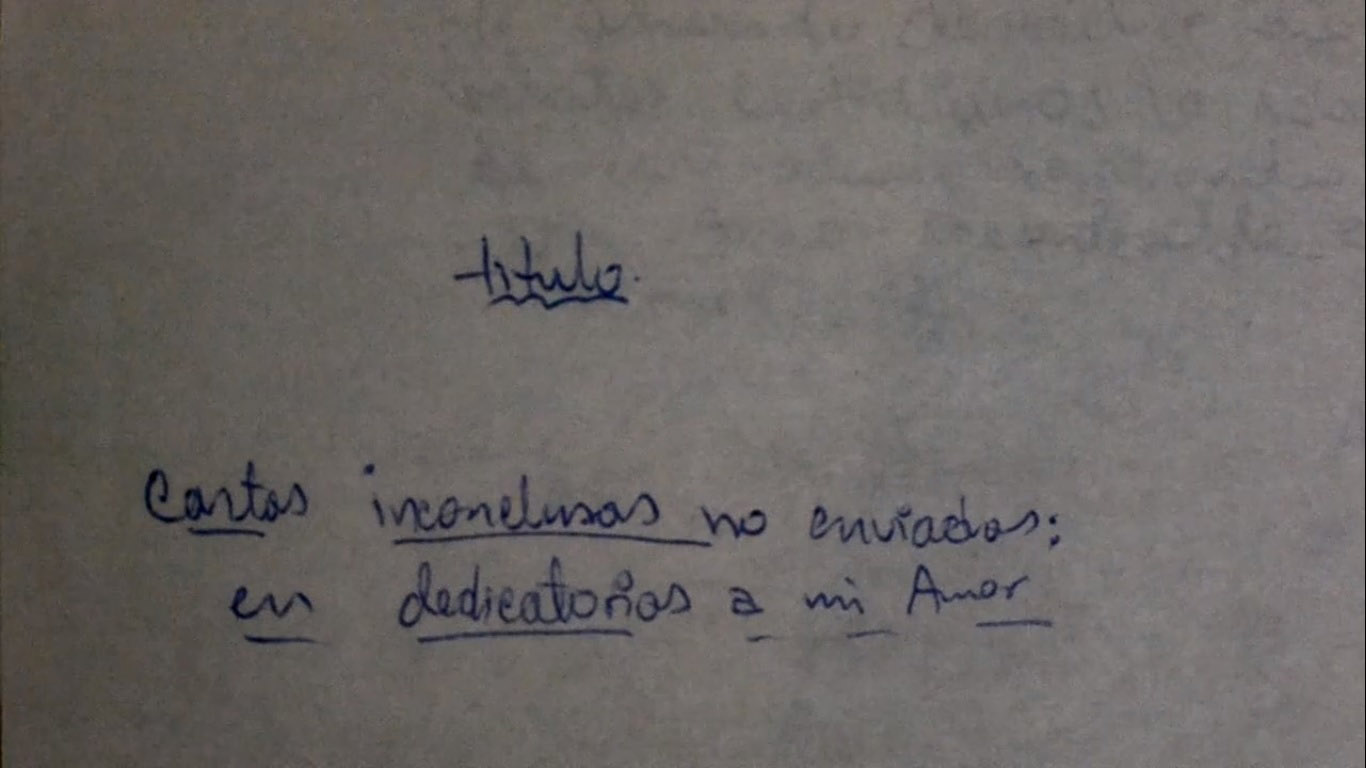 titulo.
Cartas inconclusas no enviadas:
en dedicatorias a mi Amor